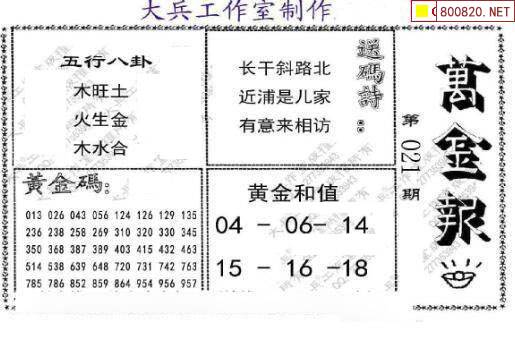 大兵工作室制作
800820.NET
五行八卦
木旺土
火生金
木水合
送碼詩：
长干斜路北
近浦是儿家
有意来相访
萬金報
第021期
黃金碼：
013 026 043 056 124 126 129 135
236 238 258 269 310 320 330 345
350 368 387 389 403 415 432 463
514 538 639 648 720 731 742 763
785 786 852 859 864 954 956 957
黄金和值
04 - 06- 14
15 - 16 -18